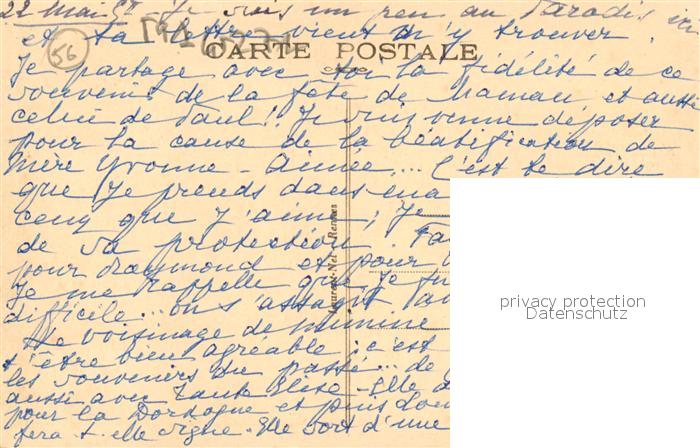 22 Mai 57 Je suis un peu au Paradis ici
et ta lettre vient m'y trouver.
56
CARTE POSTALE
Je partage avec toi la fidélité de ce
souvenir de la fête de Maman, et aussi
celui de Paul! Je suis venue déposer
pour la cause de la béatification de
Mère Yvonne-Aimée... C'est te dire
que je prends dans ma
ceux que j'aime; Je
de sa protection.
pour Raymond et pour
Je me rappelle que je
difficile... on s'assagit
Le voisinage de
t'être bien agréable; c'est
les souvenirs du passé... de
aussi avec Tante Elise - Elle
pour la Dordogne et puis
fera-t-elle signe. Elle sort d'une
Laurent-Nel - Rennes
privacy protection
Datenschutz